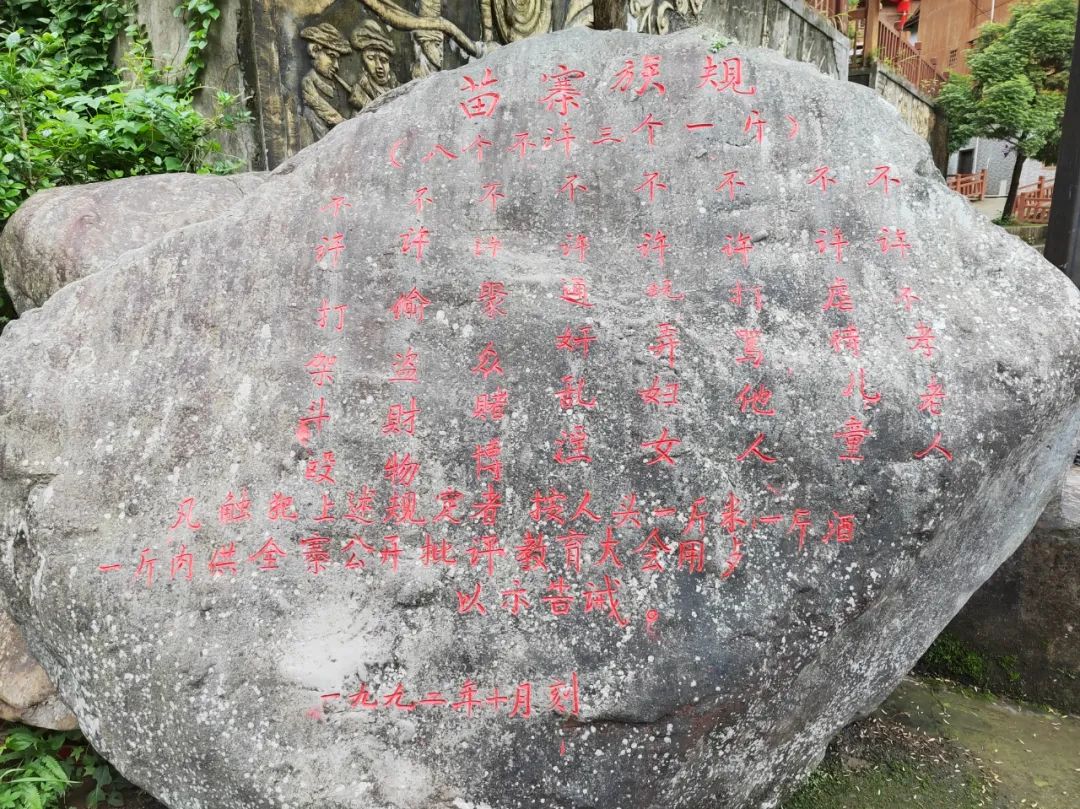 苗寨族规
（八个不许三个一斤）
不许不孝老人
不许虐待儿童
不许打骂他人
不许玩弄妇女
不许通奸乱淫
不许聚众赌博
不许偷盗财物
不许打架斗殴
凡触犯上述规定者 按人头一斤米一斤酒
一斤肉供全寨公开批评教育大会用歺
以示告诫。
一九九二年十月刻